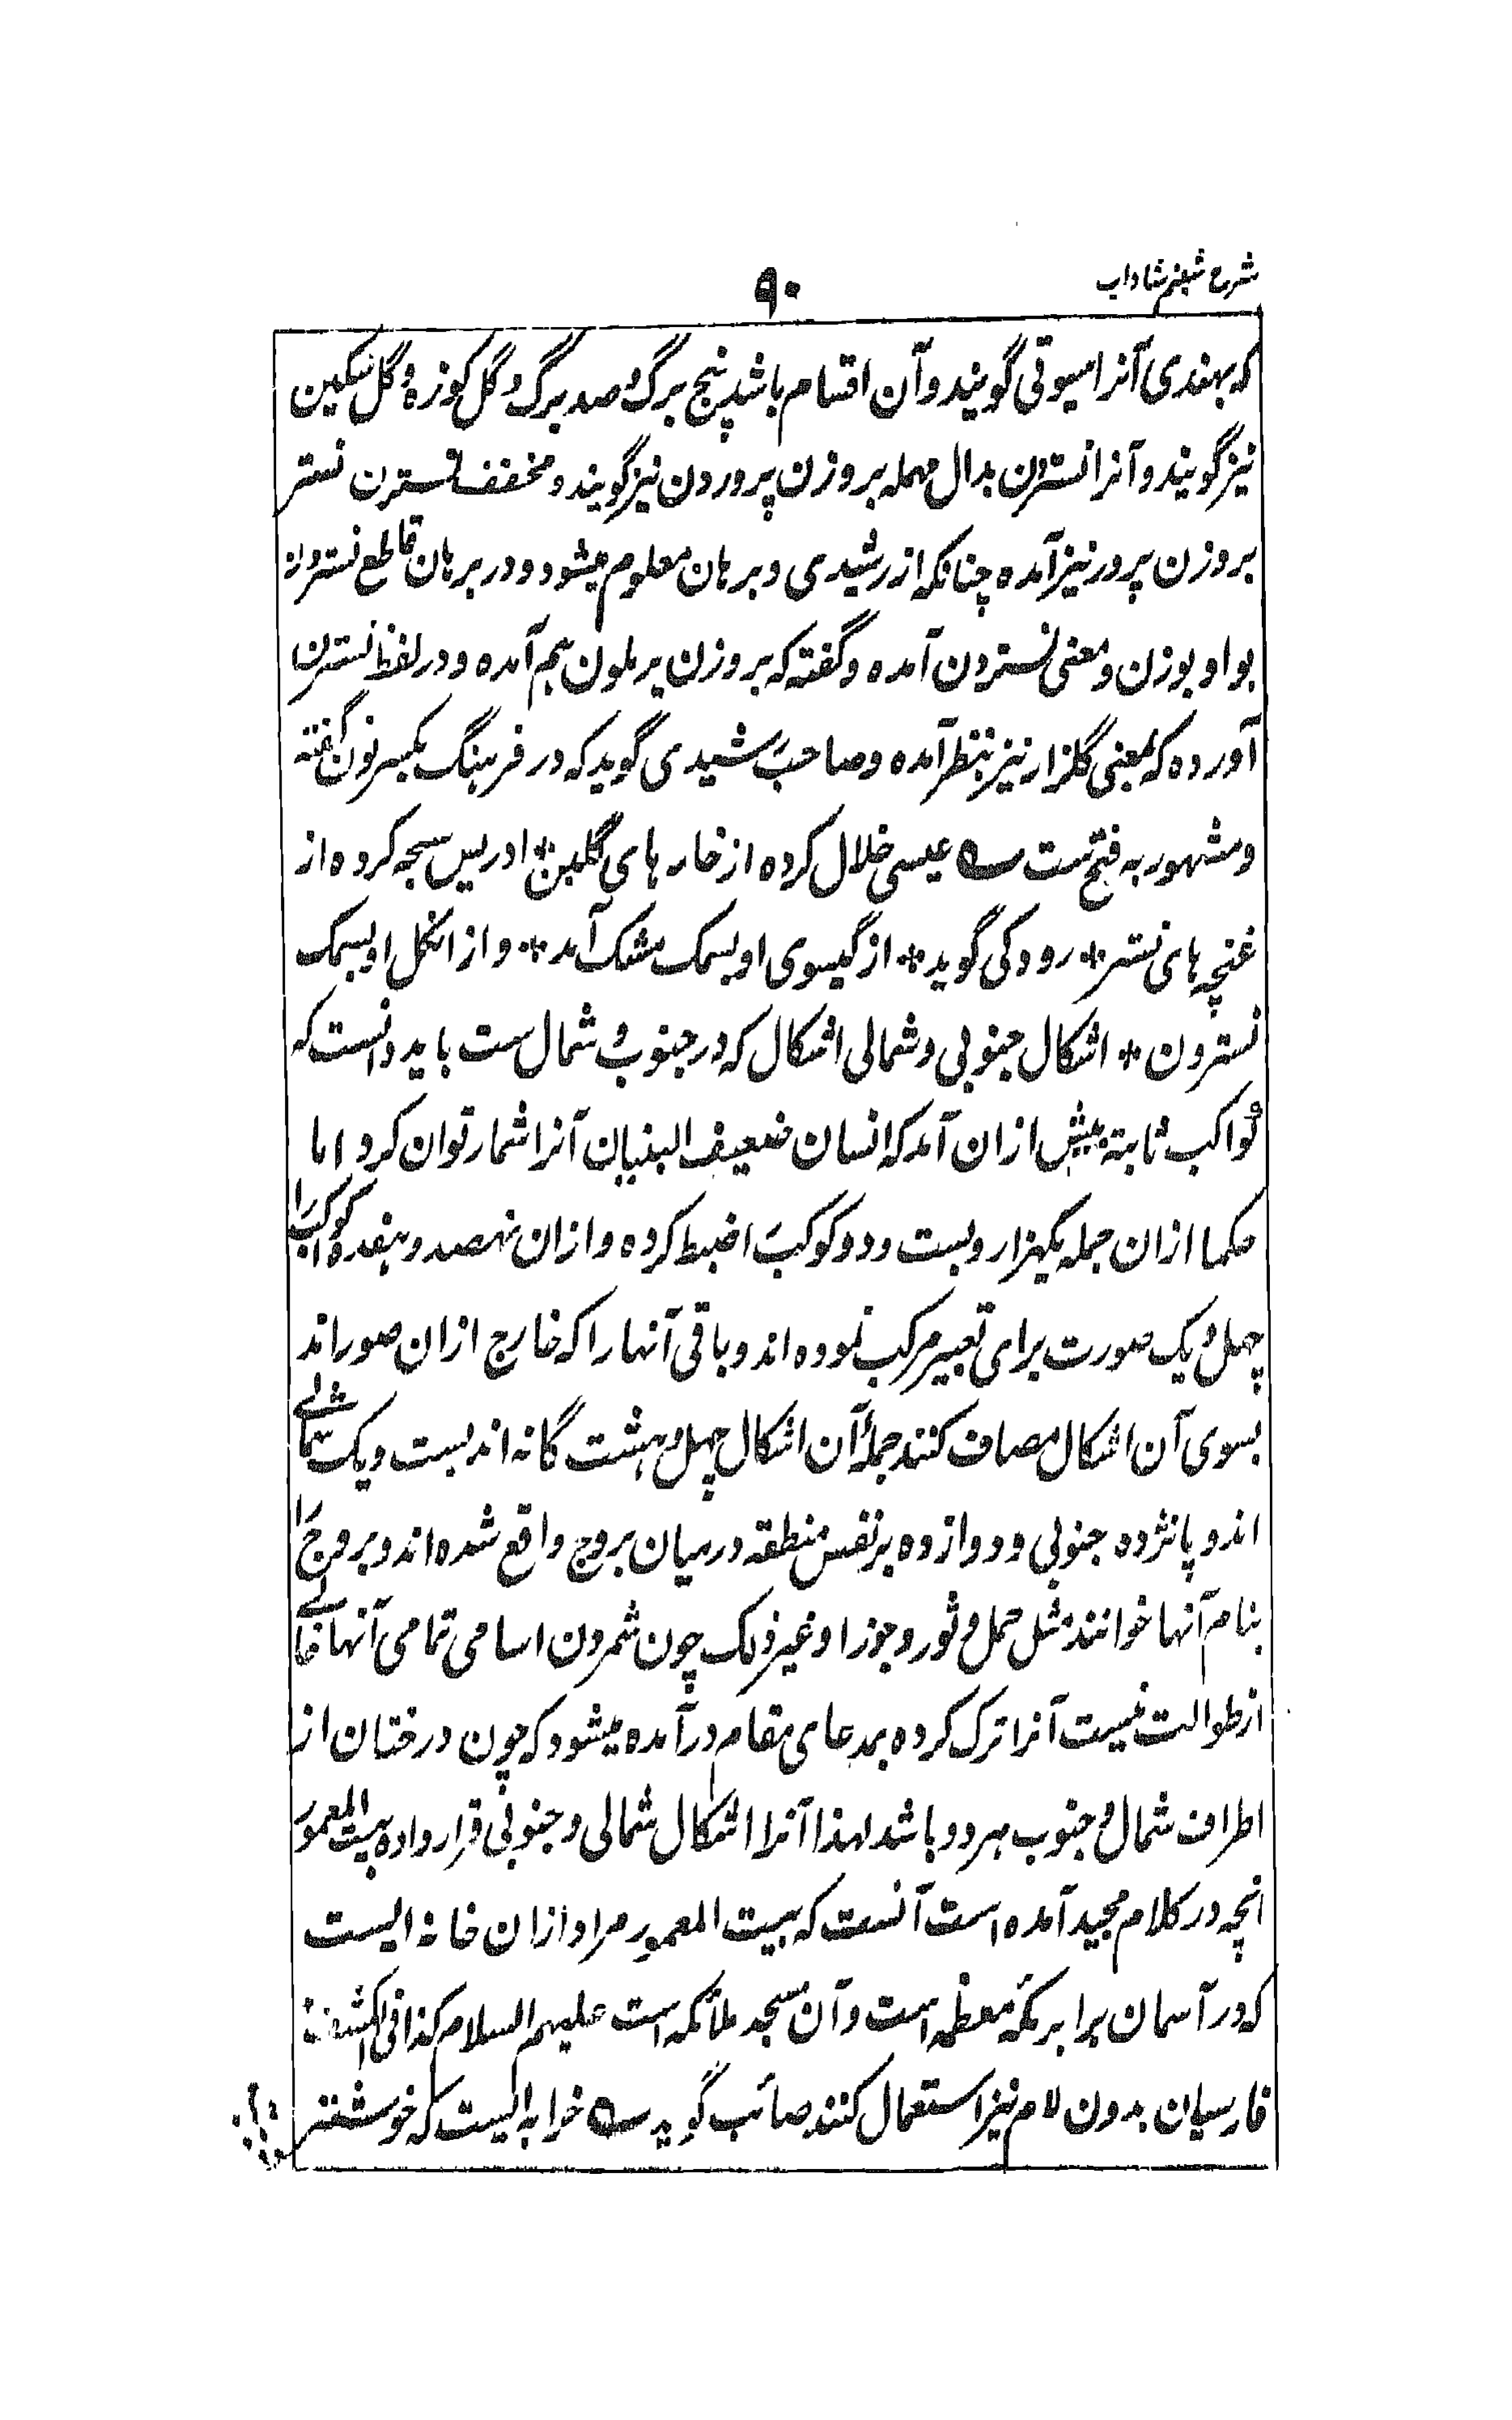 شرح شبنم شاداب
۹۰
که بهندی آنرا سیوتی گویند و آن اقسام باشد پنج برگ و صد برگ و گل کوزه و گل مشکین
نیز گویند و آنرا نستردن بدال مهمله بروزن پروردن نیز گویند و مخفف نسترن نستر
بروزن پرور نیز آمده چنانکه از رشیدی و برهان معلوم میشود و در برهان قاطع نسترون
بواو بوزن و معنی نستردن آمده و گفته که بروزن پرملون هم آمده و در لفظ نسترن
آورده که بمعنی گلزار نیز بنظر آمده و صاحب رشیدی گوید که در فرهنگ بکسر نون گفته
و مشهور به فتح ست ؎ عیسی خلال کرده از خارهای گلبن * ادریس سبحه کرده از
غنچه های نستر * رودکی گوید * از گیسوی او بسمک مشک آمد * و از انکل او بسمک
نسترون * اشکال جنوبی و شمالی اشکال که در جنوب و شمال ست باید دانست که
کواکب ثابته بیش ازان آمد که انسان ضعیف البنیان آنرا شمار توان کرد اما
حکما ازان جمله یکهزار و بست و دو کوکب را ضبط کرده و ازان نهصد و هفده کوکب را
چهل و یک صورت برای تعبیر مرکب نموده اند و باقی آنها را که خارج ازان صور اند
بسوی آن اشکال مصاف کنند جملۀ آن اشکال چهل و هشت گانه اند بست و یک شمالے
اند و پانزده جنوبی و دوازده بر نفس منطقه در میان بروج واقع شده اند و بروج را
بنام آنها خوانند مثل حمل و ثور و جوزا و غیر ذلک چون شمردن اسامی تمامی آنها خالے
از طوالت نیست آنرا ترک کرده بمدعای مقام در آمده میشود که چون درختان از
اطراف شمال و جنوب هر دو باشد لهذا آنرا اشکال شمالی و جنوبی قرار داده بیت المعمور
انچه در کلام مجید آمده است آنست که بیت المعمور مراد ازان خانه ایست
که در آسمان برابر مکۀ معظمه است و آن مسجد ملائکه است علیهم السلام کذا فی الکشف
فارسیان بدون لام نیز استعمال کنند صائب گوید ؎ خرابه ایست که خوشتر